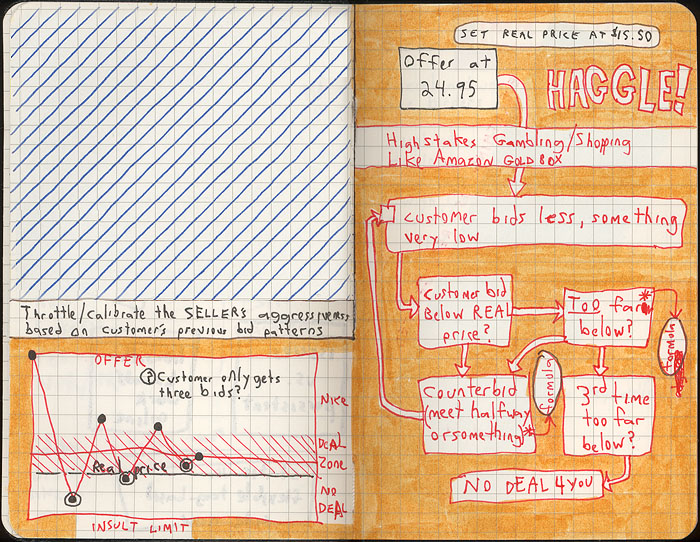 Throttle/Calibrate the SELLER's aggressiveness
based on customer's previous bid patterns
OFFER
? Customer only gets
three bids?
NICE
DEAL
ZONE
Real price
NO
DEAL
INSULT LIMIT
SET REAL PRICE AT $15.50
Offer at
24.95
HAGGLE!
High stakes Gambling/Shopping
Like Amazon GOLD BOX
customer bids less, something
very low
customer bid
Below REAL
price?
Too far*
below?
formula
Counterbid
(meet halfway
or something)*
formula
3rd time
too far
below?
NO DEAL 4 YOU